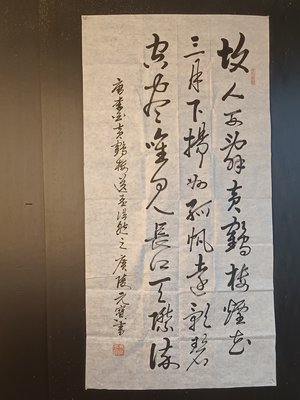 故人西辭黄鶴樓煙花
三月下揚州孤帆遠影碧
空盡唯見長江天際流
唐李白黄鶴樓送孟浩然之廣陵 元寶書